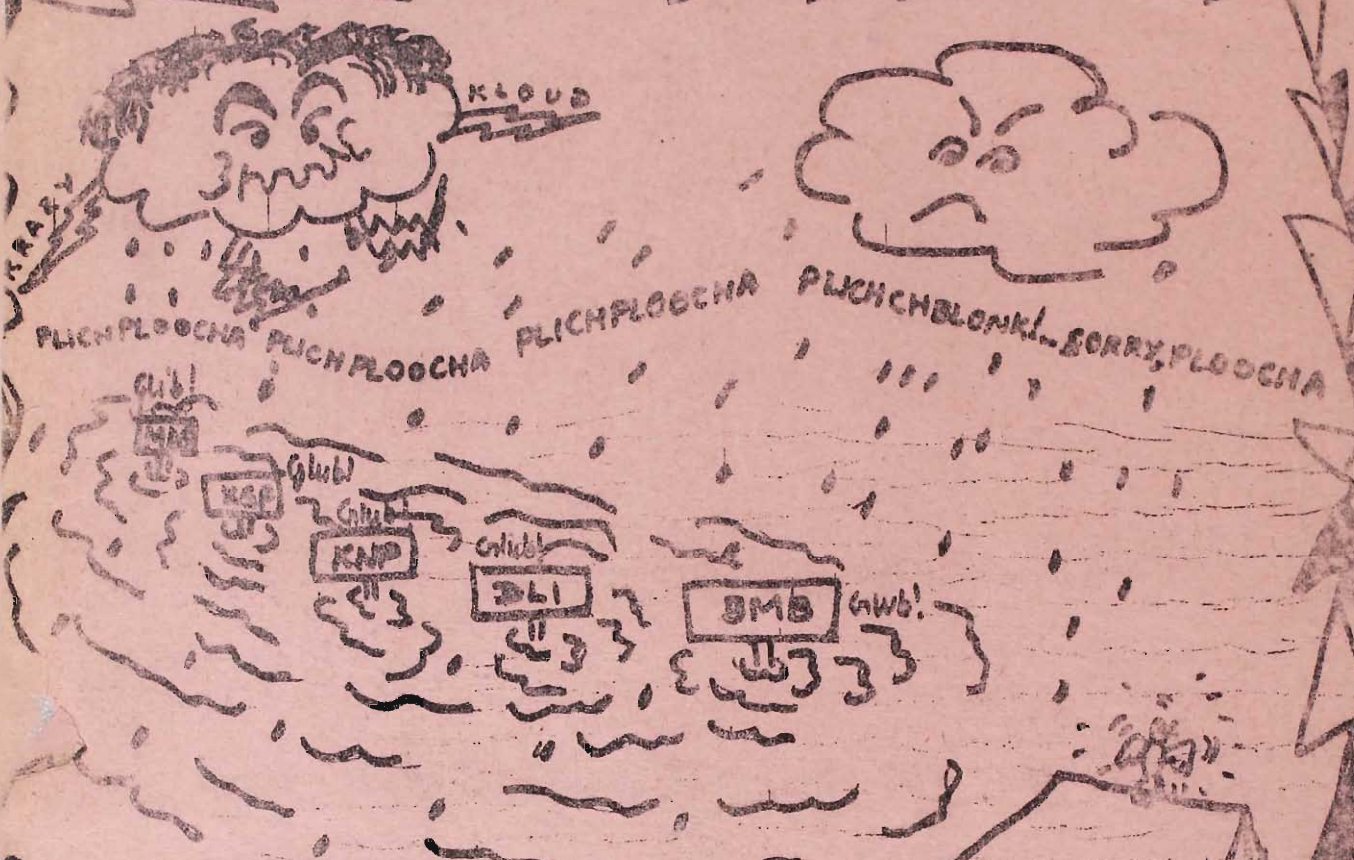 KLOUD
KRAZY
PLICHPLOOCHA PLICHPLOOCHA PLICHPLOOCHA PLICHCHBLONK!.. SORRY, PLOOCHA
Glub!
Glub!
Glub!
KNP
Glub!
DLI
BMB
Glub!